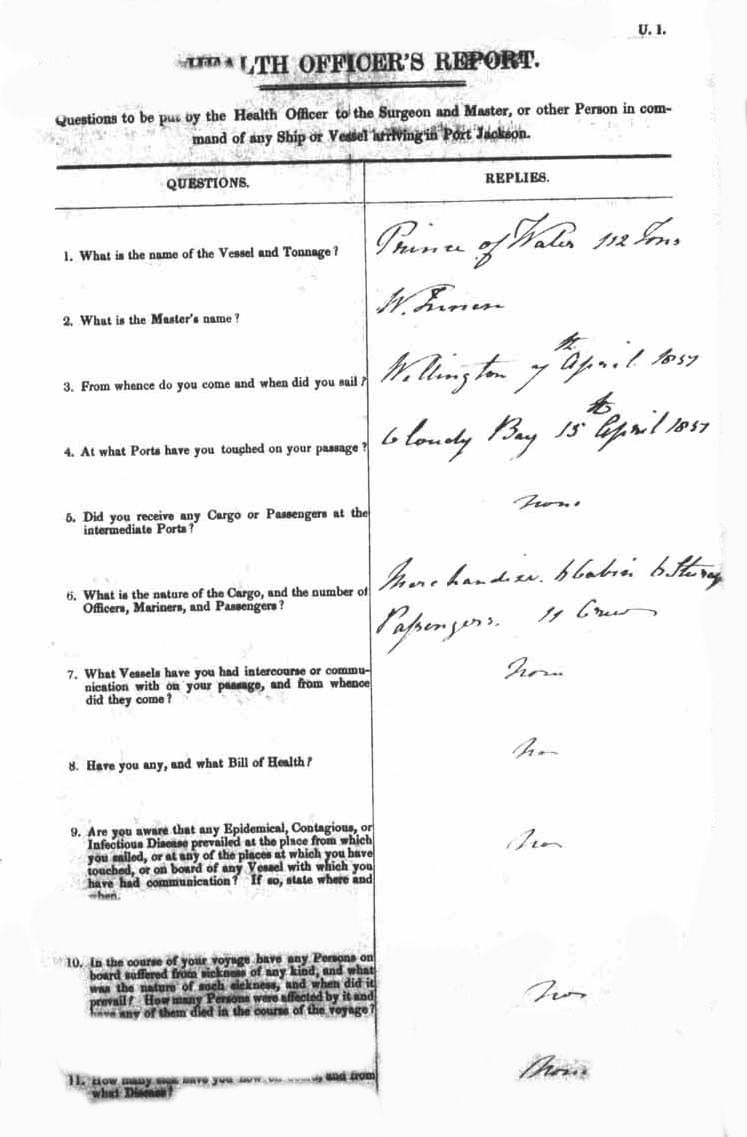 U. 1.
HEALTH OFFICER'S REPORT.
Questions to be put by the Health Officer to the Surgeon and Master, or other Person in com-
mand of any Ship or Vessel arriving in Port Jackson.
QUESTIONS.
REPLIES.
1. What is the name of the Vessel and Tonnage?
Prince of Wales 112 Tons
2. What is the Master's name?
W.
3. From whence do you come and when did you sail?
Wellington 7th April 1857
4. At what Ports have you touched on your passage?
Cloudy Bay 15th April 1857
5. Did you receive any Cargo or Passengers at the
intermediate Ports?
None
6. What is the nature of the Cargo, and the number of
Officers, Mariners, and Passengers?
Merchandise. 6 Cabin 6 Steerage
Passengers. 11 Crew
7. What Vessels have you had intercourse or commu-
nication with on your passage, and from whence
did they come?
None
8. Have you any, and what Bill of Health?
No
9. Are you aware that any Epidemical, Contagious, or
Infectious Disease prevailed at the place from which
you sailed, or at any of the places at which you have
touched, or on board of any Vessel with which you
have had communication? If so, state where and
when.
No
10. In the course of your voyage have any Persons on
board suffered from sickness of any kind, and what
was the nature of such sickness, and when did it
prevail? How many Persons were affected by it and
have any of them died in the course of the voyage?
No
11. How many sick have you now on board, and from
what Disease?
None